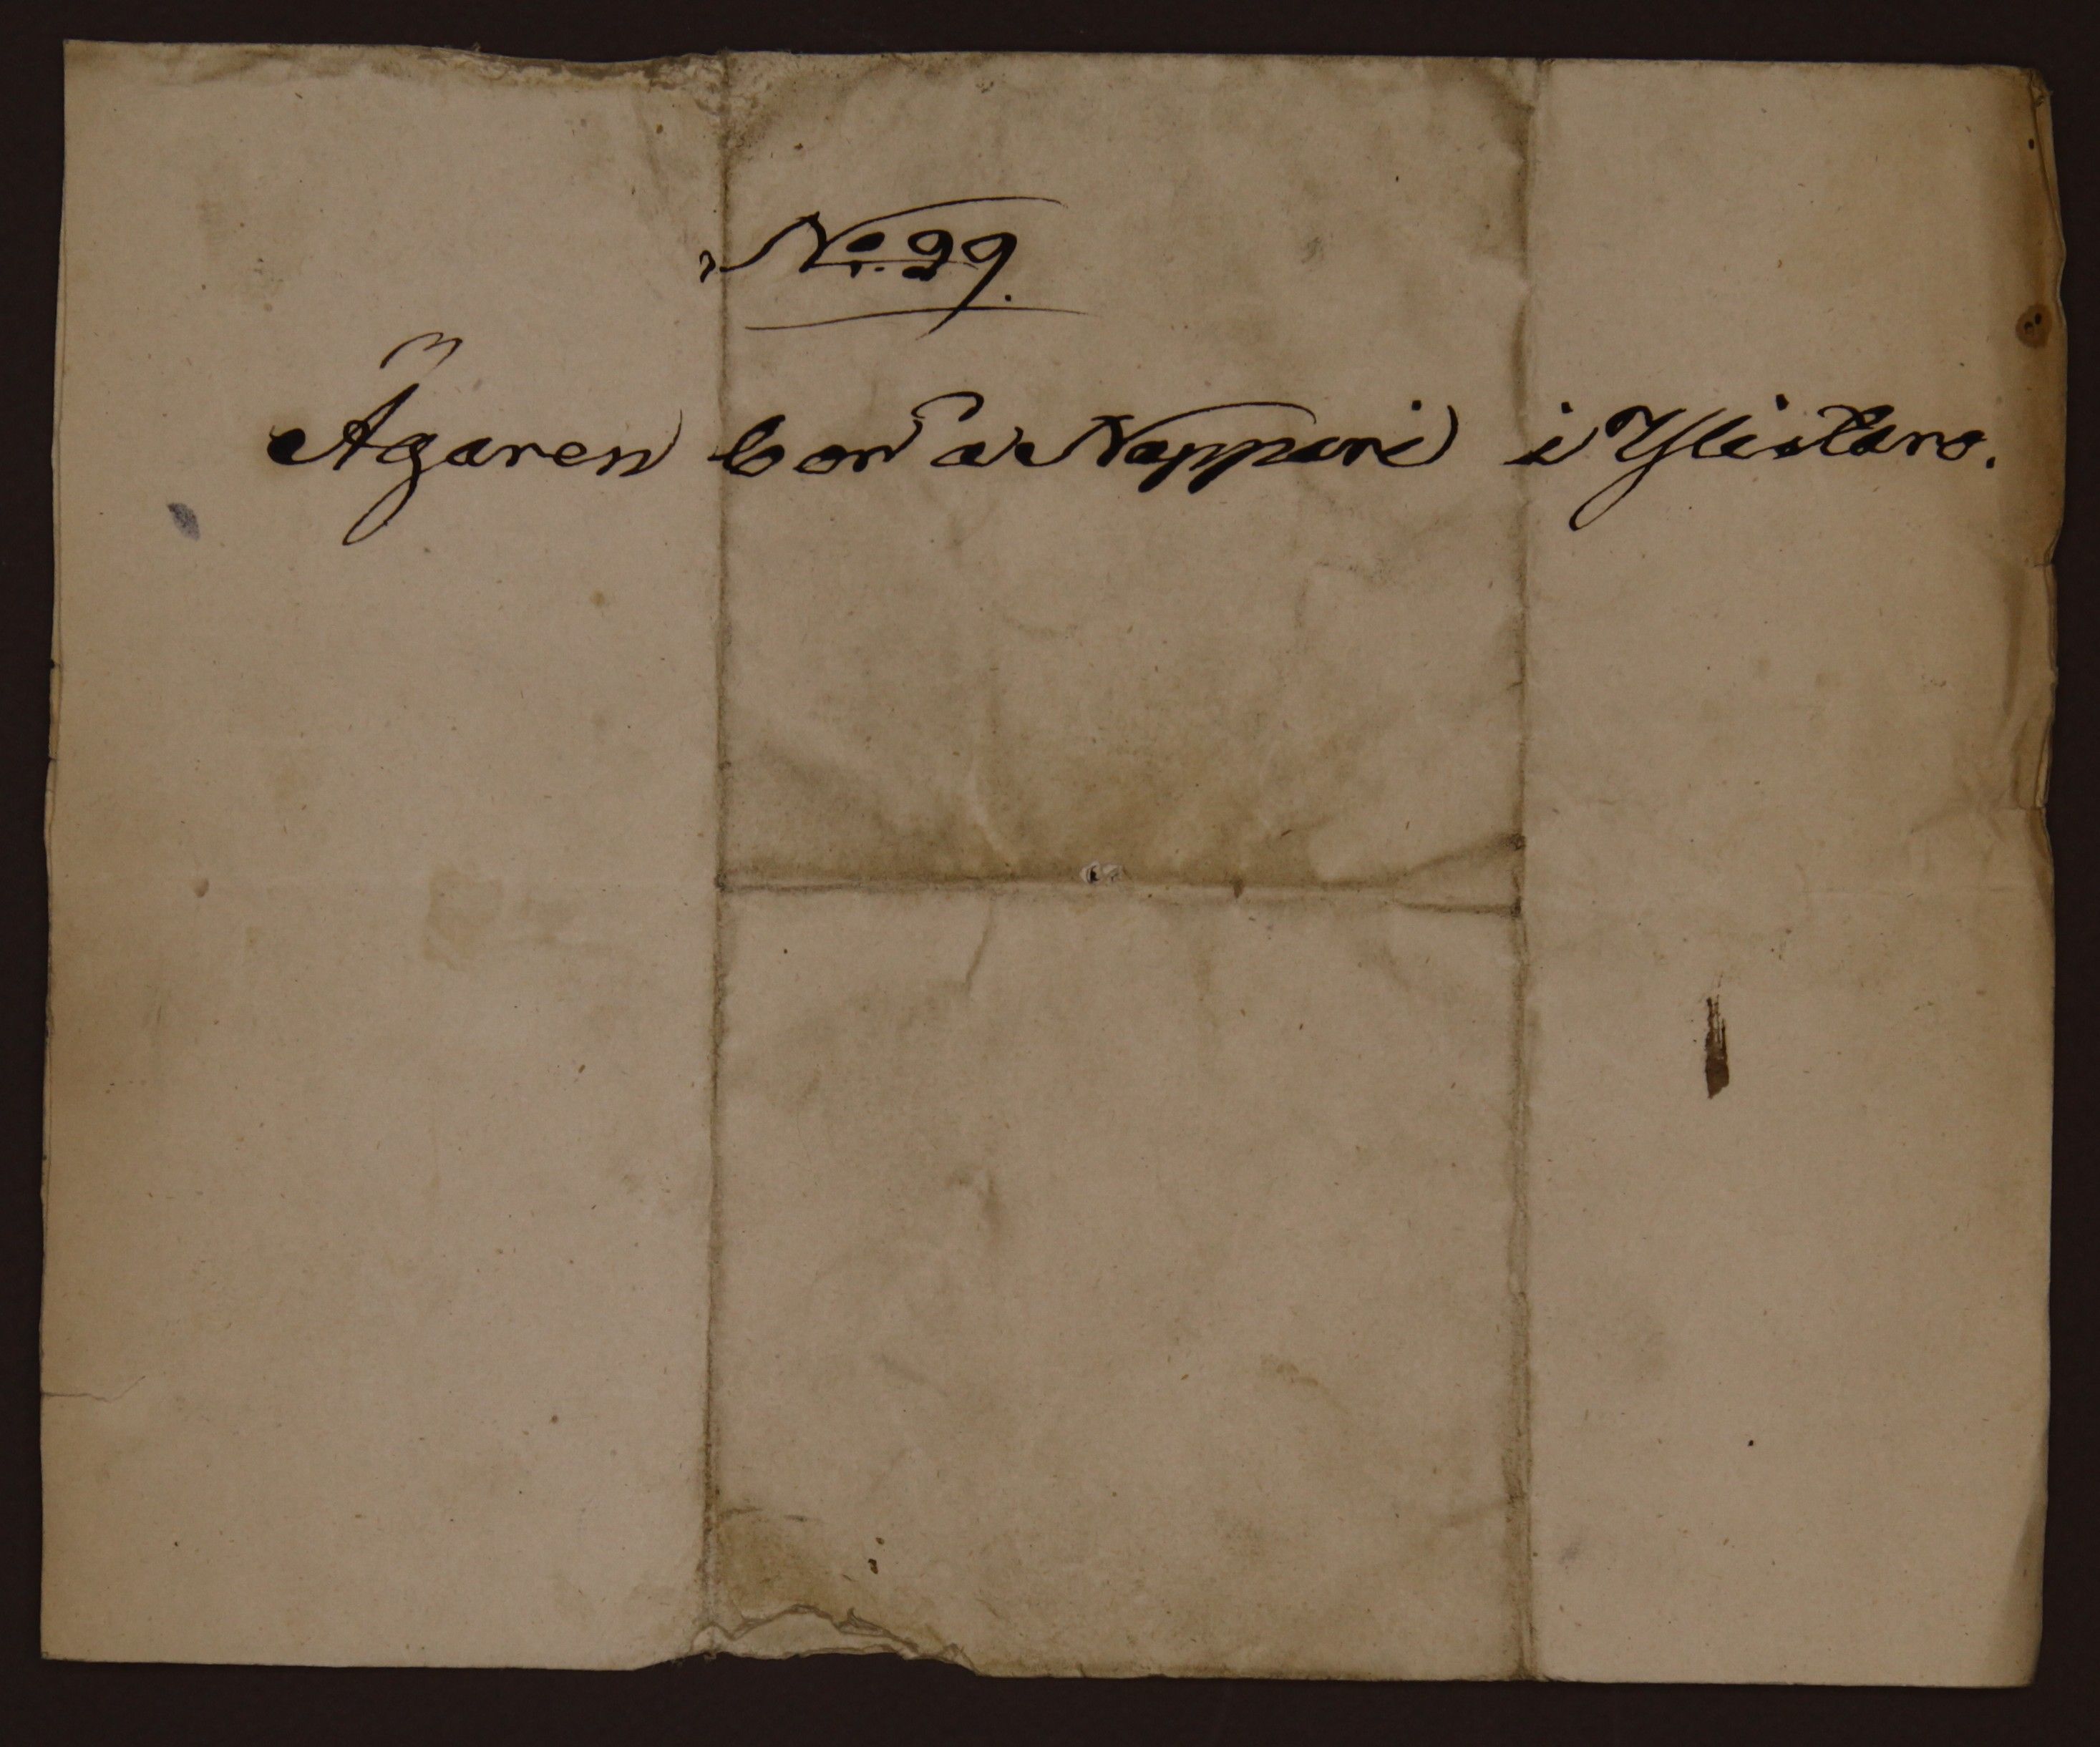 No. 29.
Ägaren bor å Nappari i Ylistaro.